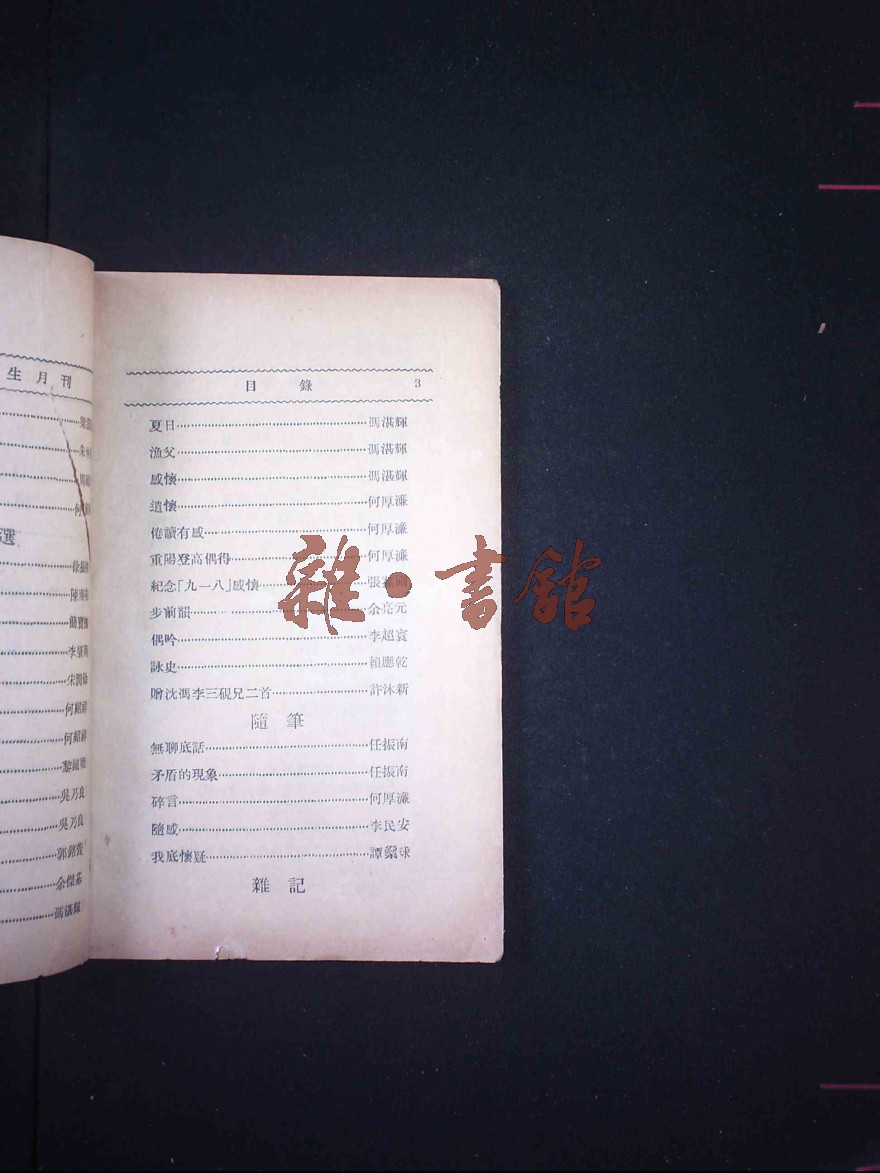 生月刊
選
李肇
朱潤
何紹
何紹
黎
吳乃良
吳乃良
郭銘
余傑
馮湛
目錄 3
夏日 馮湛輝
漁父 馮湛輝
感懷 馮湛輝
遣懷 何厚濂
倦讀有感 何厚濂
重陽登高偶得 何厚濂
紀念「九一八」感懷 張
步前韻 余亮元
偶吟 李超寰
詠史 賴應乾
贈沈馮李三硯兄二首 許沐新
隨筆
無聊底話 任振南
矛盾的現象 任振南
碎言 何厚濂
隨感 李民安
我底懷疑 譚球
雜記
雜·書館